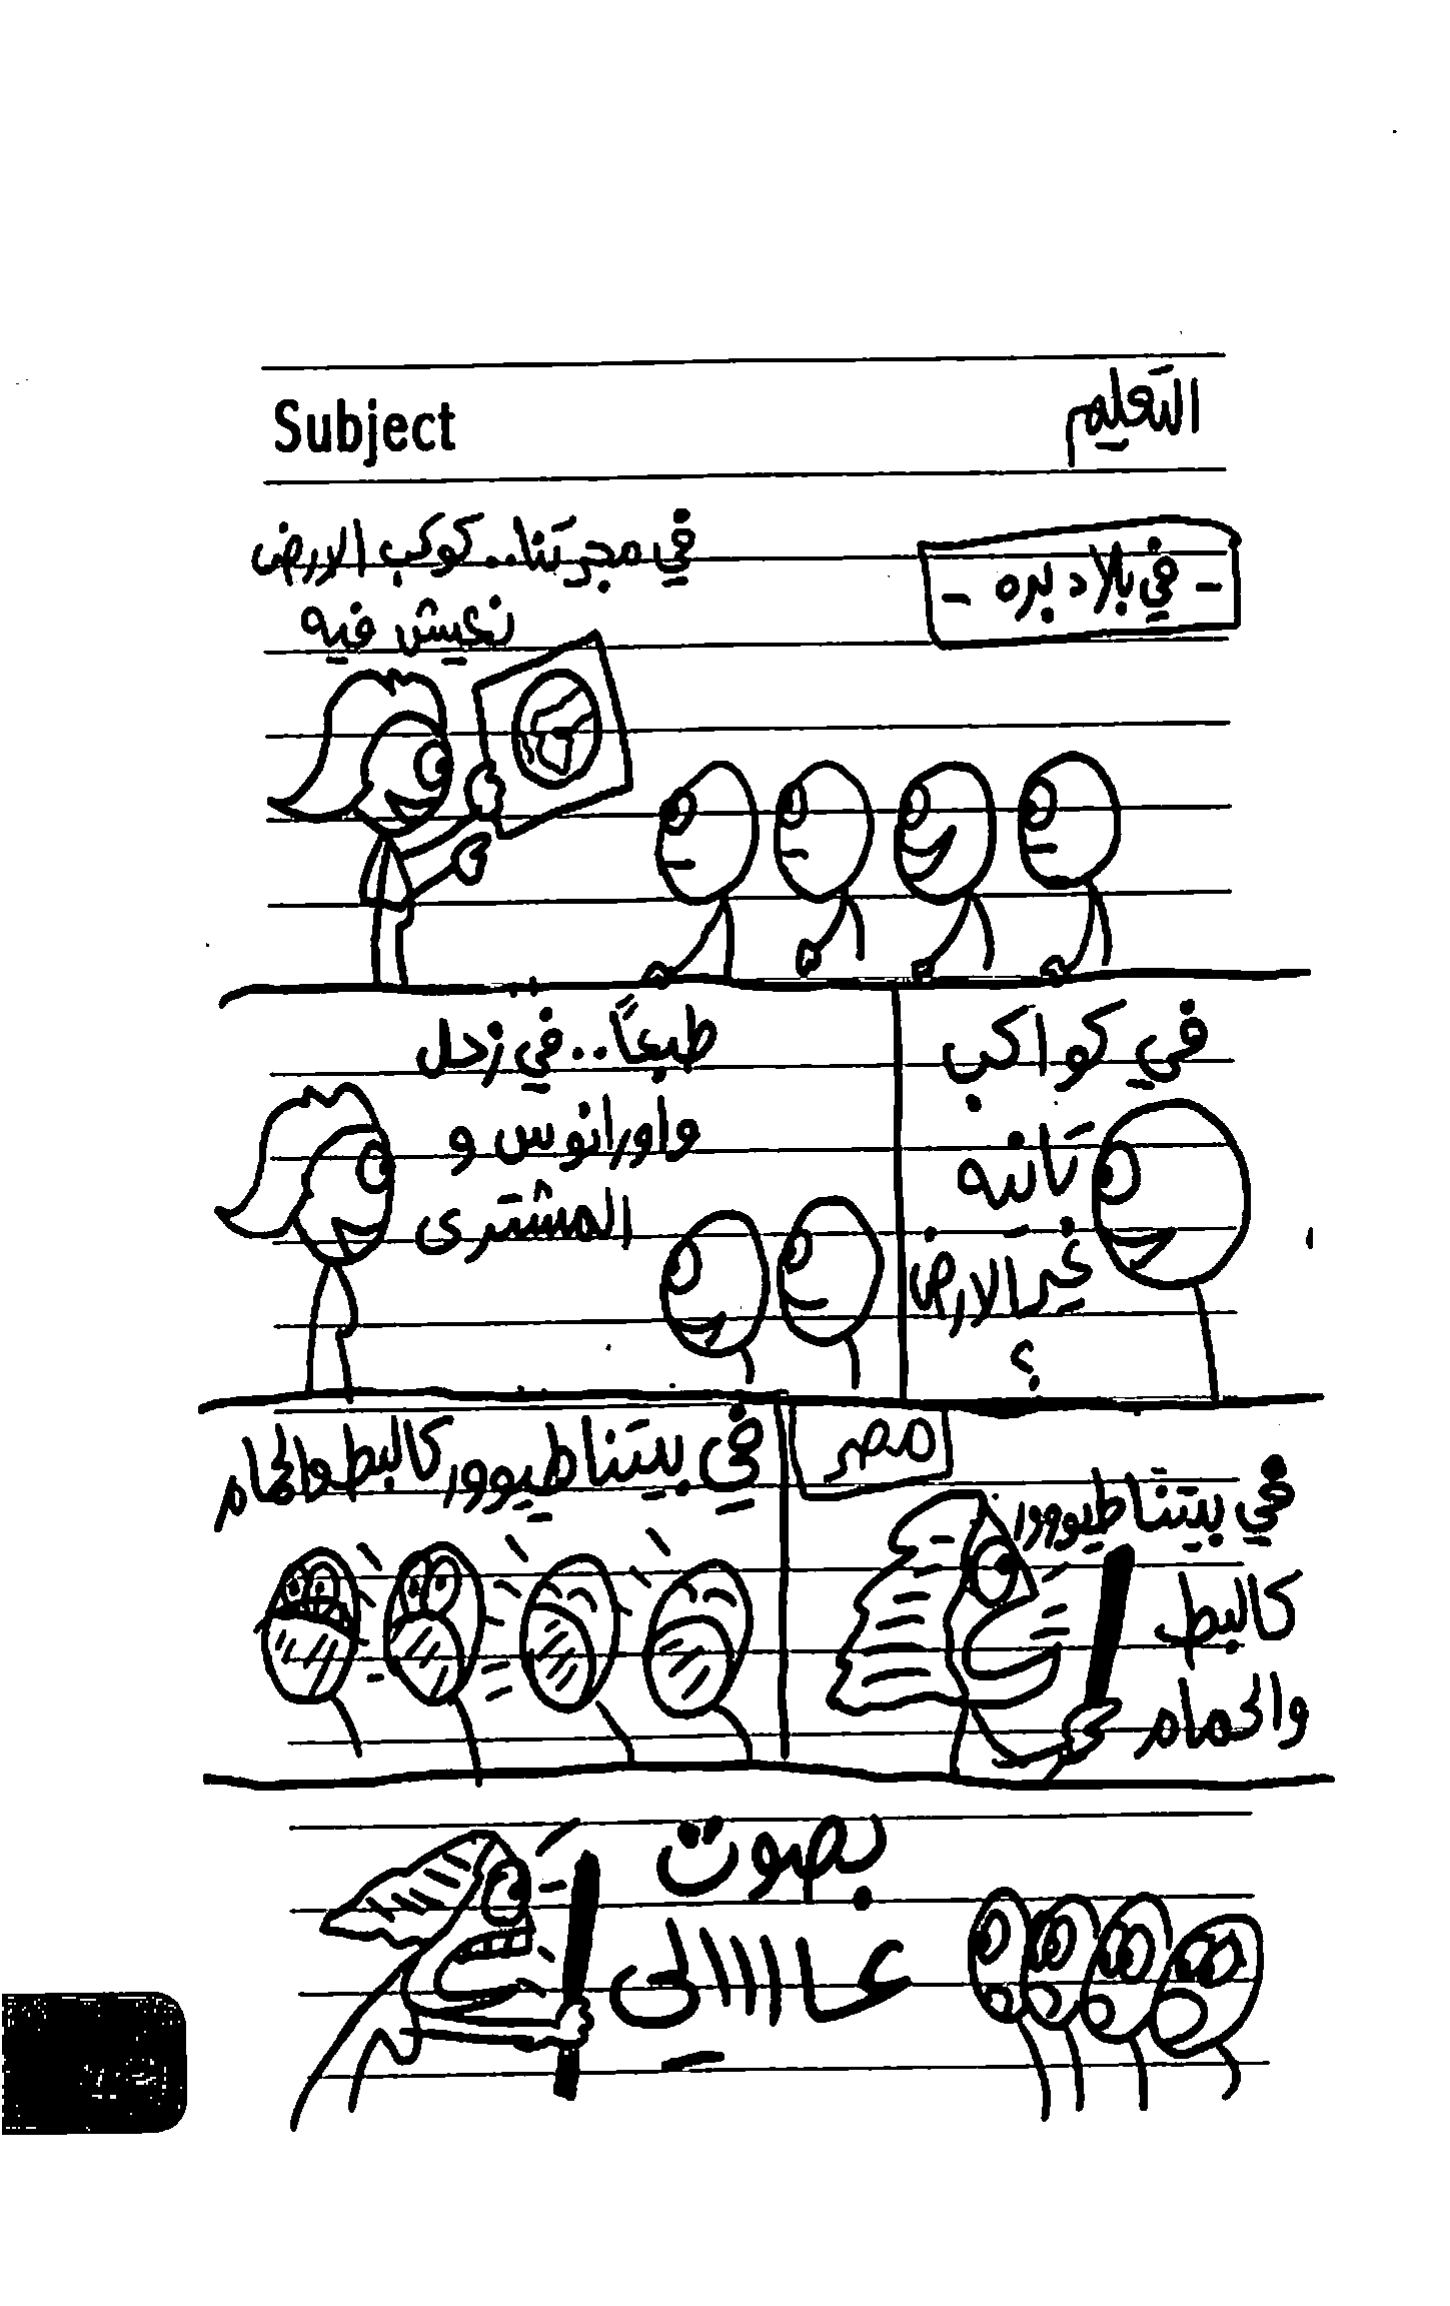 Subject
التعليم
- في بلاد بره -
في مجرتنا.. كوكب الارض
نعيش فيه
في كواكب
تانيه
غير الارض
؟
طبعاً.. في زحل
واورانوس و
المشترى
مصر
في بيتنا طيووور
كالبط
والحمام
في بيتنا طيوور كالبط والحمام
بصوت
عاااالي